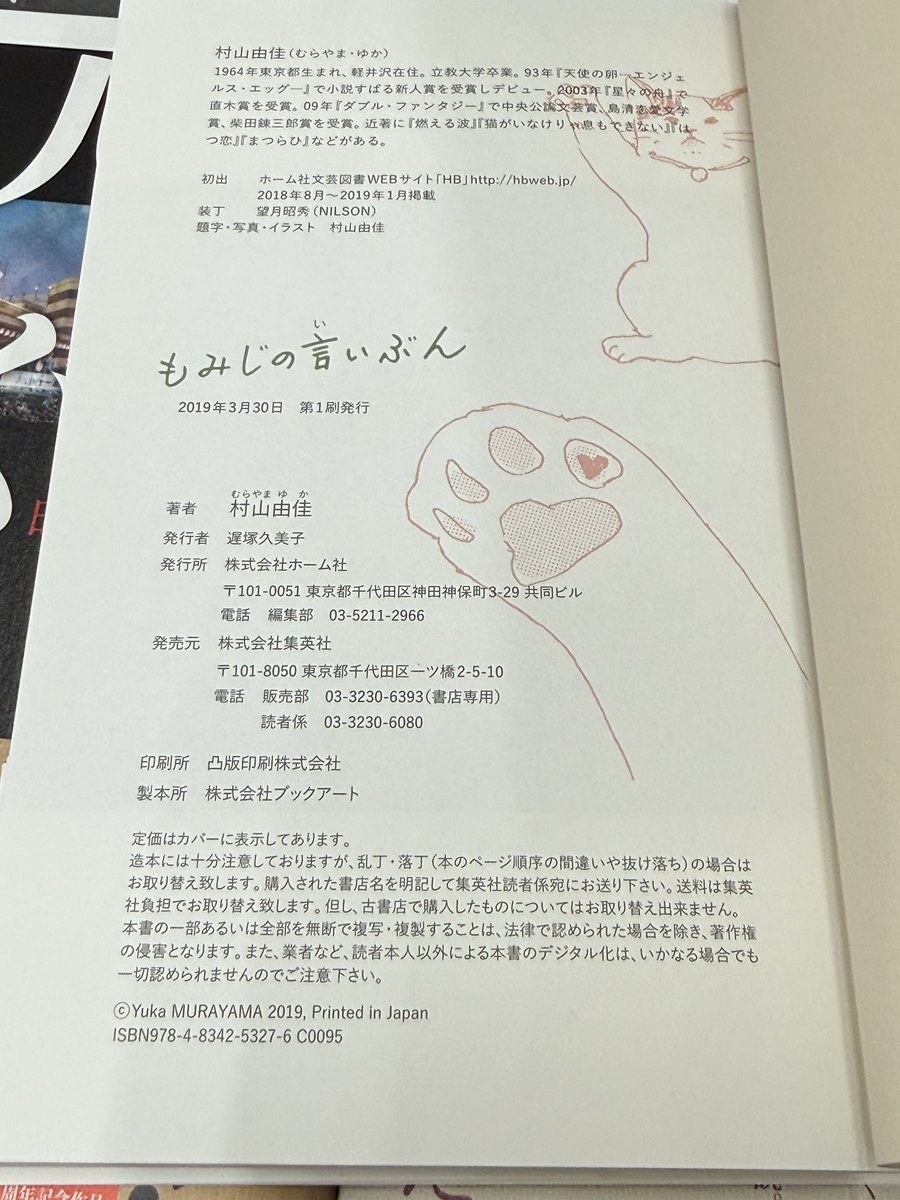 村山由佳(むらやま・ゆか)
1964年東京都生まれ、軽井沢在住。立教大学卒業。93年『天使の卵―エンジェ
ルス・エッグ―』で小説すばる新人賞を受賞しデビュー。2003年『星々の舟』で
直木賞を受賞。09年『ダブル・ファンタジー』で中央公論文芸賞、島清恋愛文学
賞、柴田錬三郎賞を受賞。近著に『燃える波』『猫がいなけりゃ息もできない』『は
つ恋』『まつらひ』などがある。
初出 ホーム社文芸図書WEBサイト「HB」http://hbweb.jp/
2018年8月〜2019年1月掲載
装丁 望月昭秀(NILSON)
題字・写真・イラスト 村山由佳
い
もみじの言いぶん
2019年3月30日 第1刷発行
むらやま ゆか
著者 村山由佳
発行者 遅塚久美子
発行所 株式会社ホーム社
〒101-0051 東京都千代田区神田神保町3-29 共同ビル
電話 編集部 03-5211-2966
発売元 株式会社集英社
〒101-8050 東京都千代田区一ツ橋2-5-10
電話 販売部 03-3230-6393(書店専用)
読者係 03-3230-6080
印刷所 凸版印刷株式会社
製本所 株式会社ブックアート
定価はカバーに表示してあります。
造本には十分注意しておりますが、乱丁・落丁(本のページ順序の間違いや抜け落ち)の場合は
お取り替え致します。購入された書店名を明記して集英社読者係宛にお送り下さい。送料は集英
社負担でお取り替え致します。但し、古書店で購入したものについてはお取り替え出来ません。
本書の一部あるいは全部を無断で複写・複製することは、法律で認められた場合を除き、著作権
の侵害となります。また、業者など、読者本人以外による本書のデジタル化は、いかなる場合でも
一切認められませんのでご注意下さい。
©Yuka MURAYAMA 2019, Printed in Japan
ISBN978-4-8342-5327-6 C0095